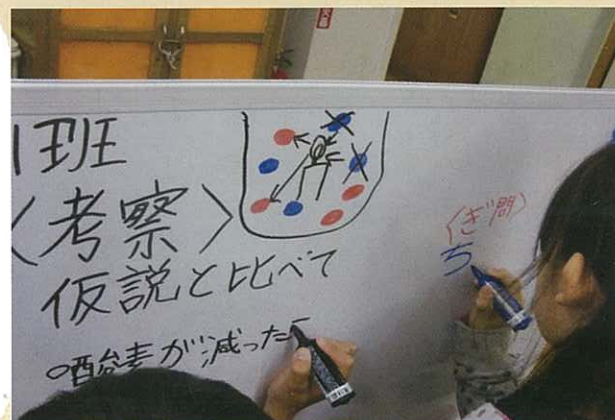 1班
〈考察〉
仮説と比べて
○酸素が減った
〈ぎ問〉
ち